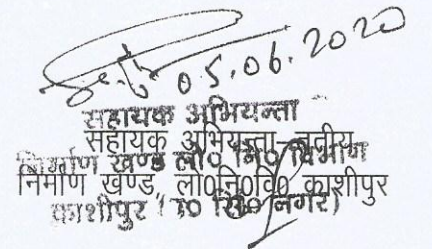 05.06.2020
सहायक अभियन्ता
सहायक अभियन्ता तृतीय
निर्माण खण्ड लो० नि० विभाग
निर्माण खण्ड, लो0नि0वि0 काशीपुर
काशीपुर
नगर)